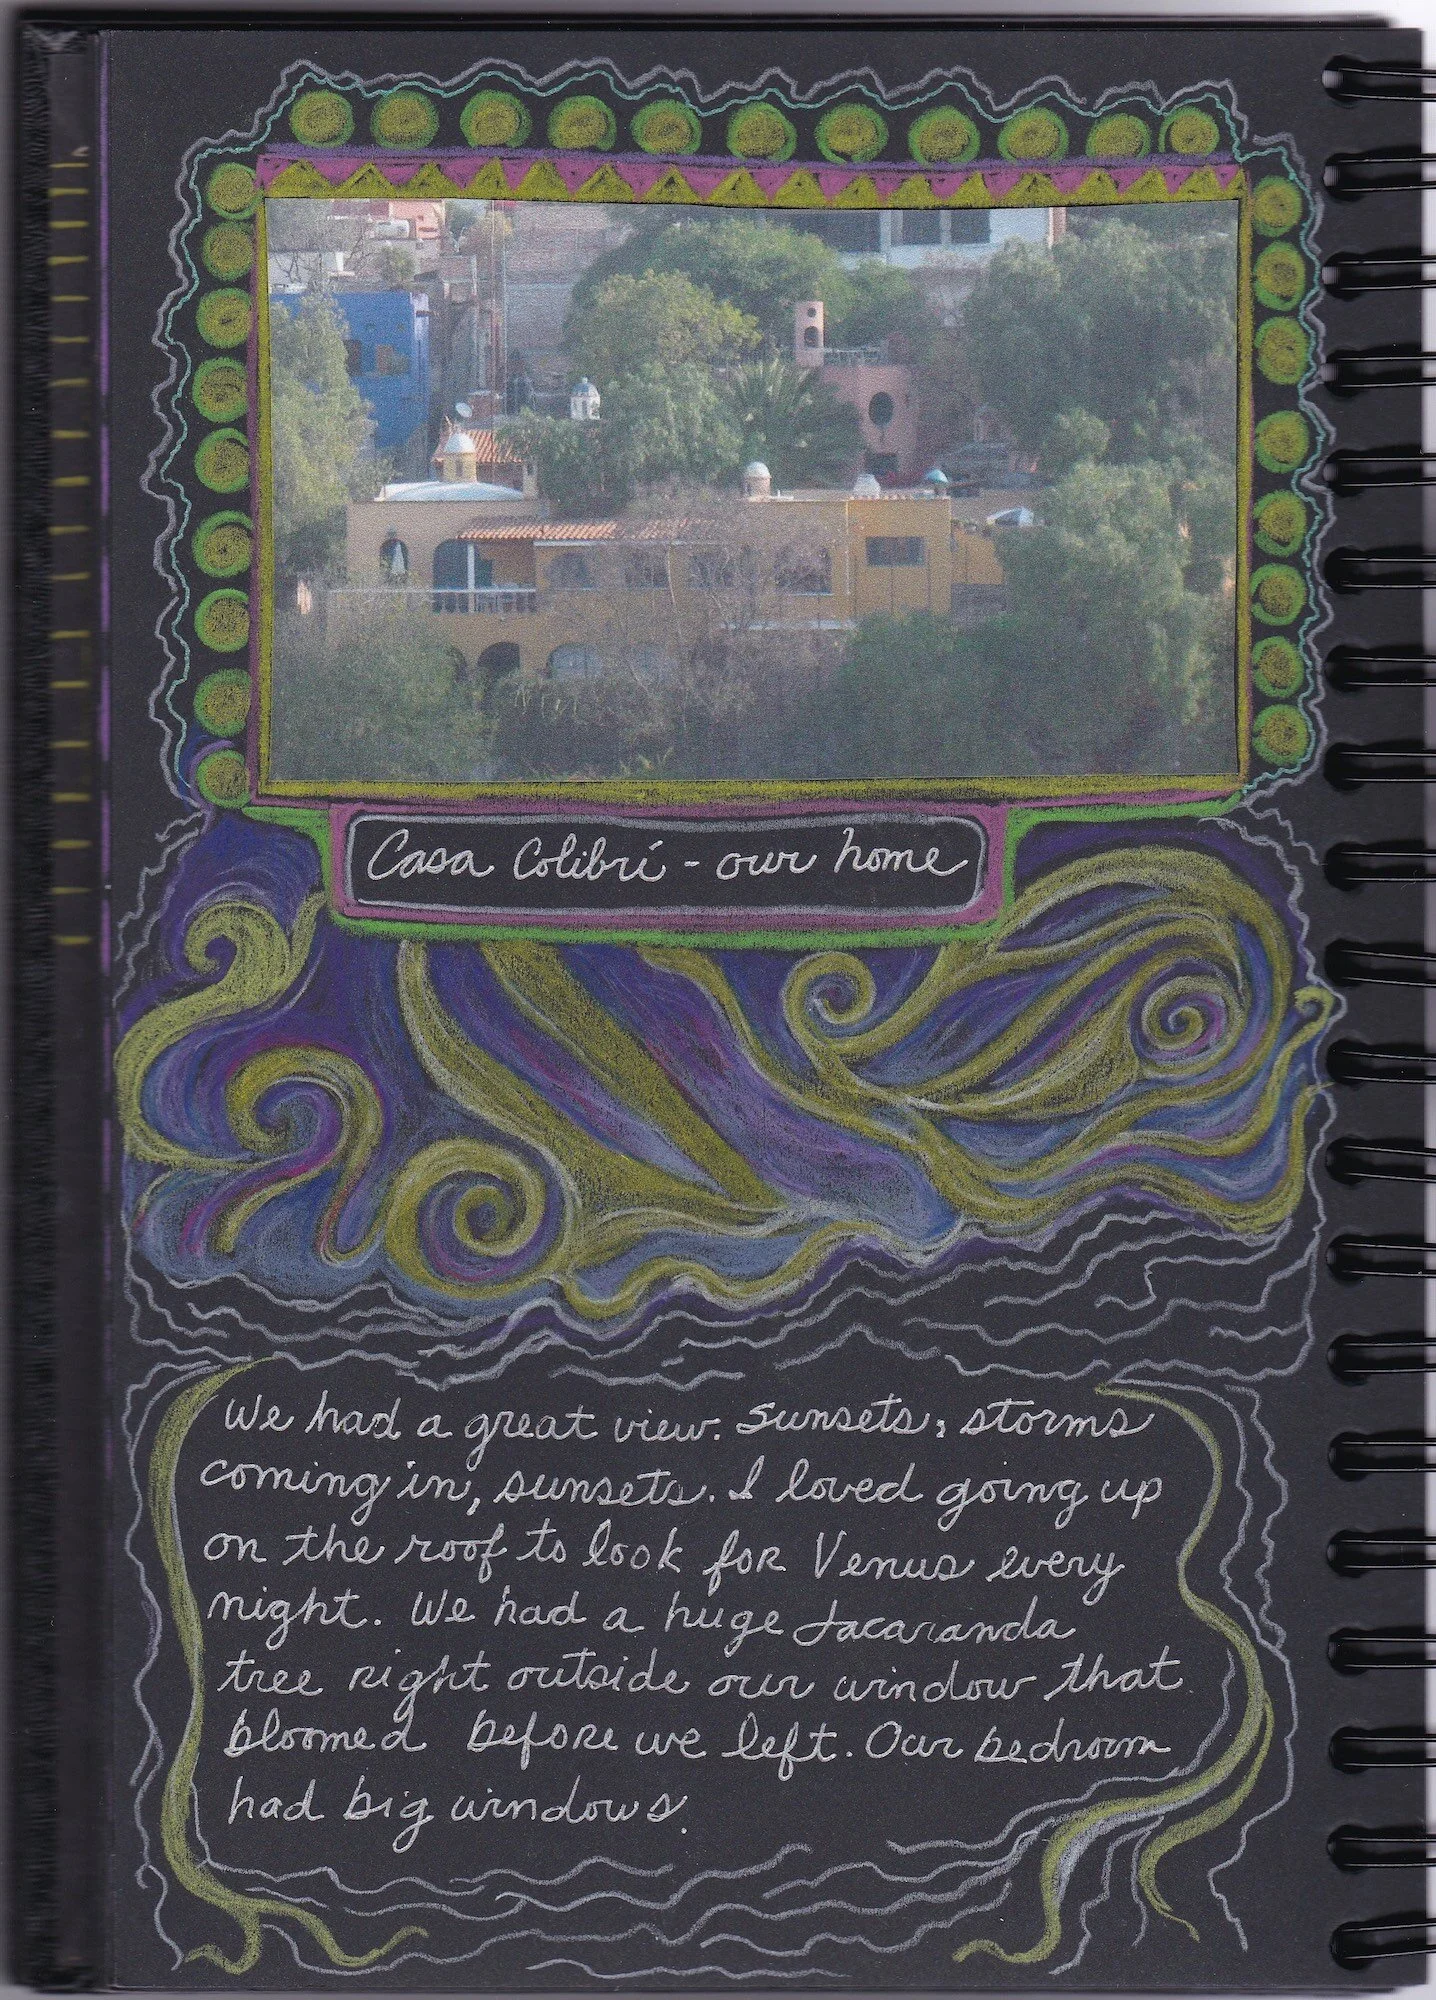 Casa Colibrí - our home
We had a great view. Sunsets, storms
coming in, sunsets. I loved going up
on the roof to look for Venus every
night. We had a huge Jacaranda
tree right outside our window that
bloomed before we left. Our bedroom
had big windows.